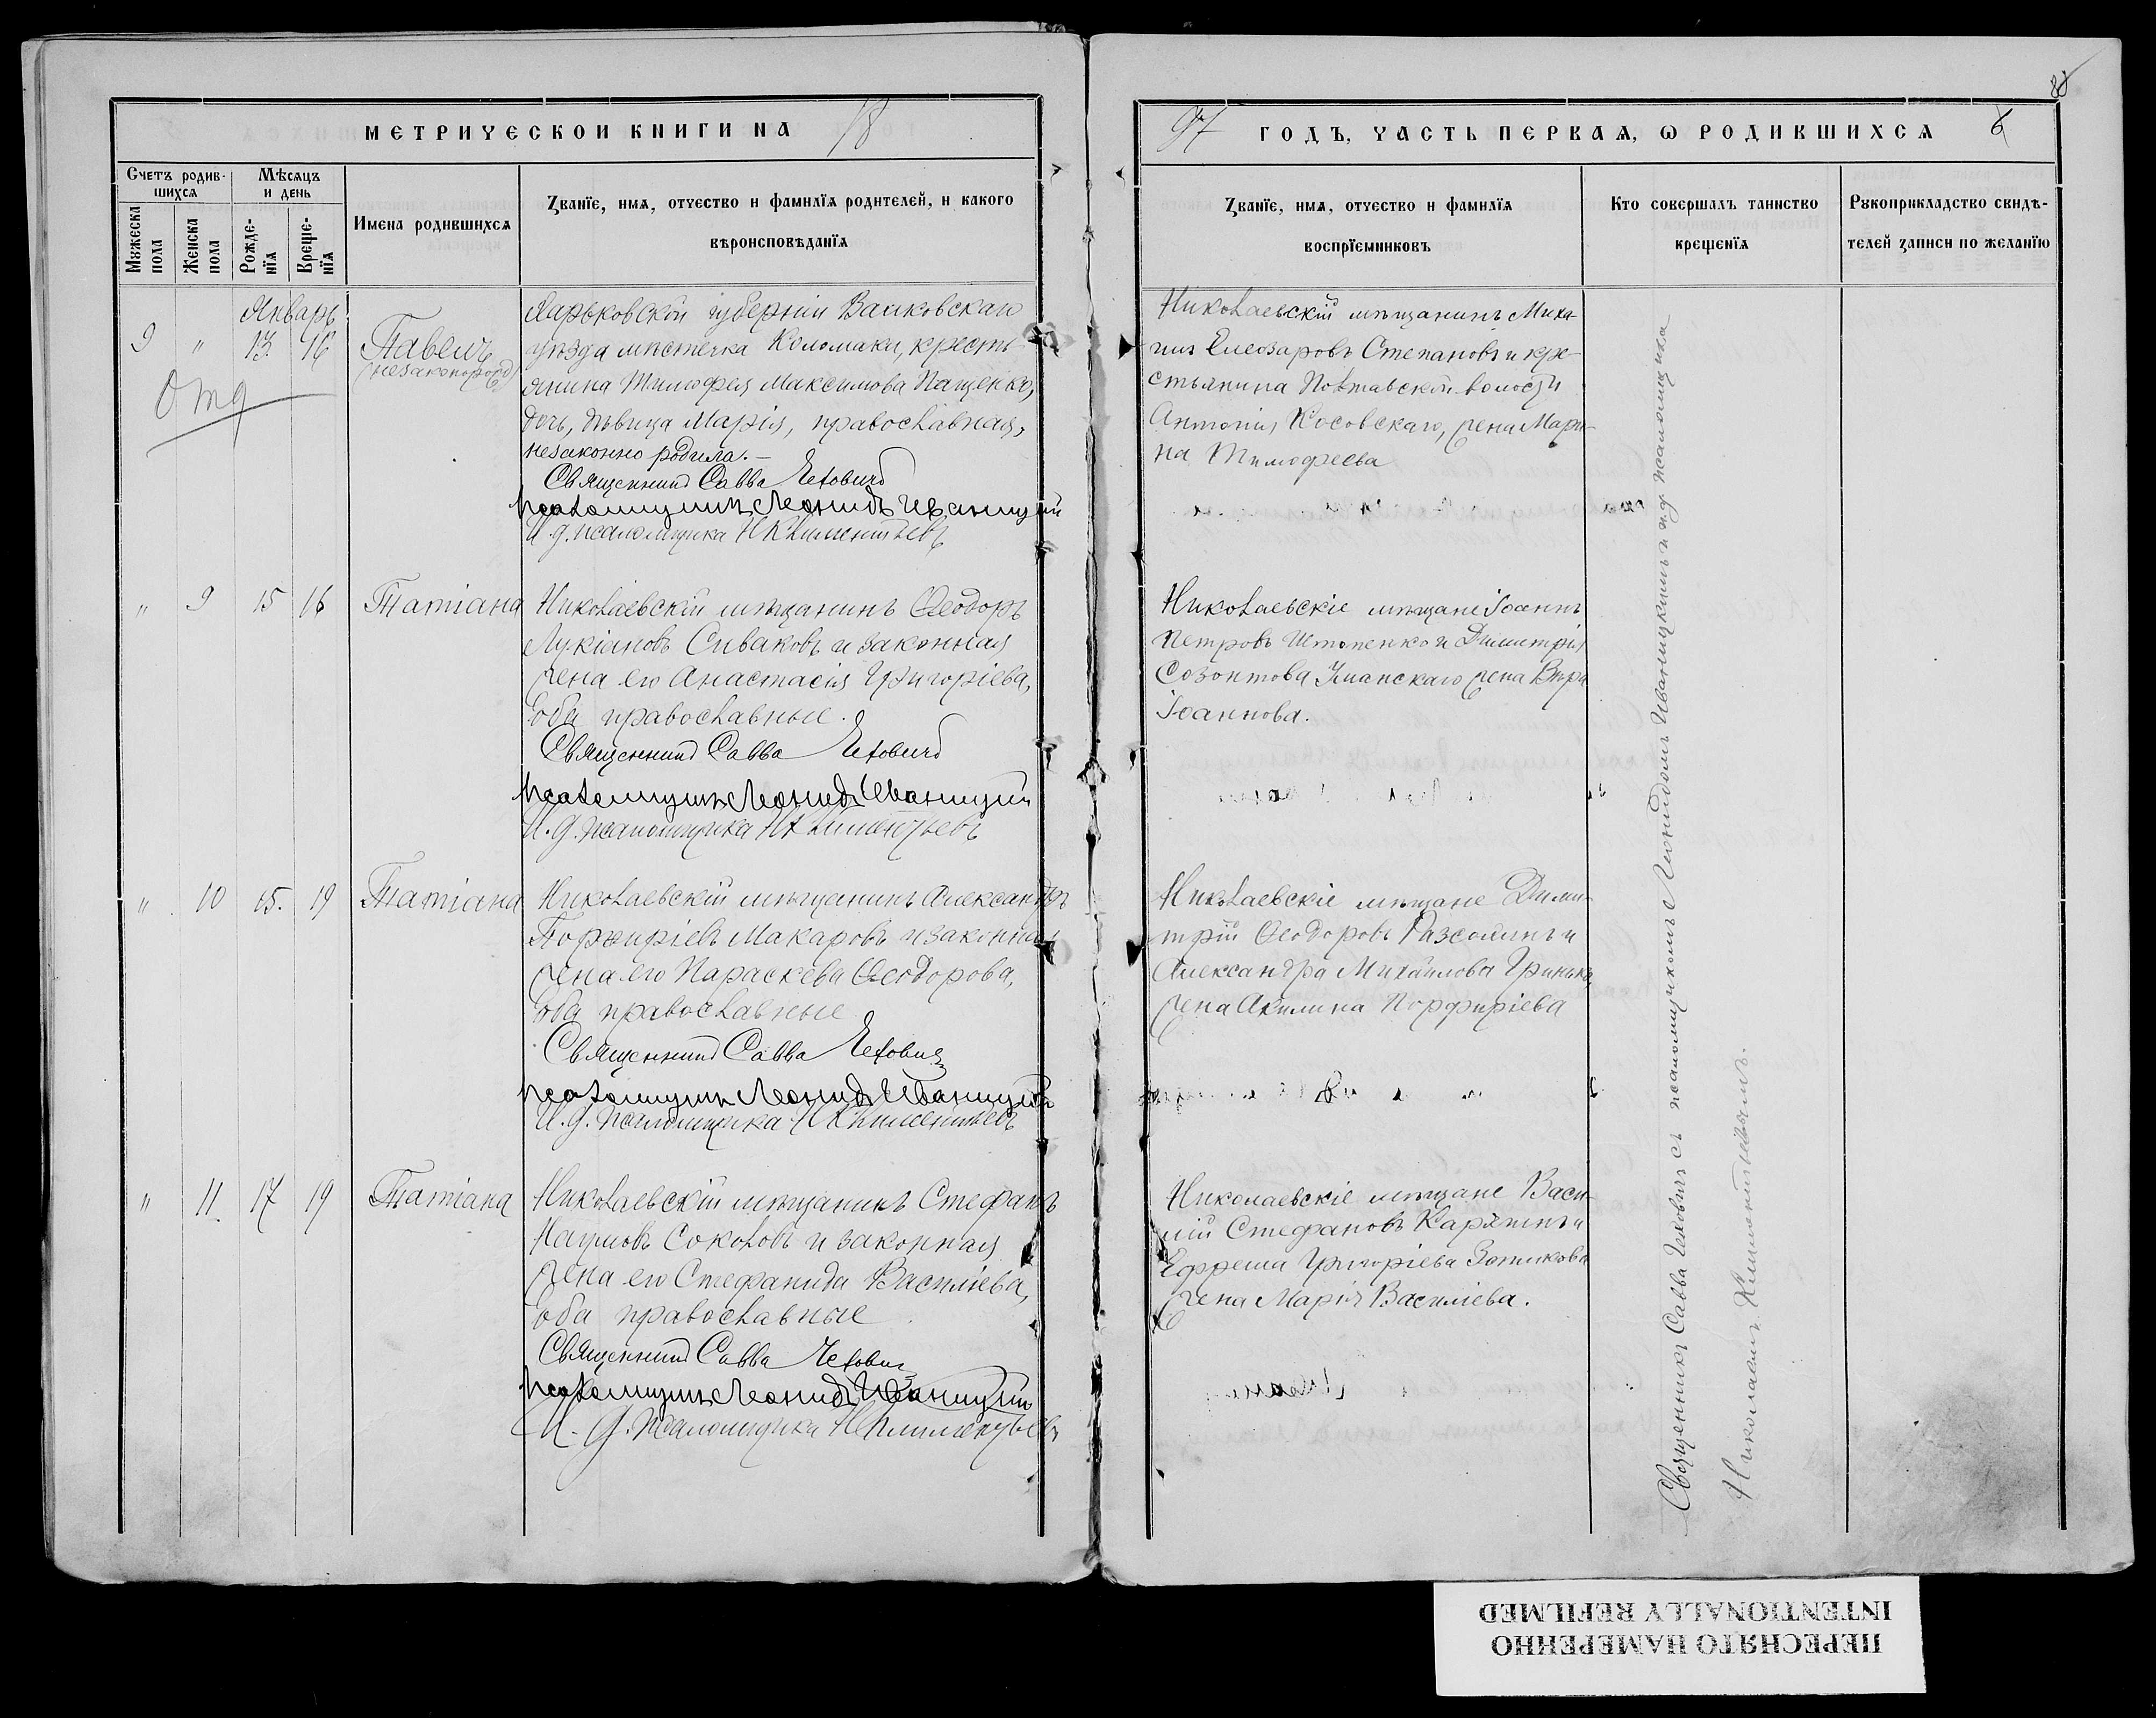 МЕТРИЧЕСКОЙ КНИГИ НА 18
97 ГОДЪ, ЧАСТЬ ПЕРВАЯ, Ѡ РОДИВШИХСЯ
Счетъ родив-
шихся
Мѣсяцъ
и день
Мужеска
пола
Женска
пола
Рожде-
нїя
Креще-
нїя
Имена родившихся
Званїе, имя, отчество и фамилїя родителей, и какого
вѣроисповѣданїя
Званїе, имя, отчество и фамилїя
воспрїемниковъ
Кто совершалъ таинство
крещенїя
Рукоприкладство свидѣ-
телей записи по желанїю
Январь
9 " 13. 16
Отд
Павелъ
(незаконорожд)
Харьковской губерніи Валковскаго
уѣзда мѣстечка Коломака, кресть-
янина Тимофея Максимова Пащенко,
дочь, дѣвица Марія, православная,
незаконно родила.—
Священникъ Савва Чеховичъ
Псаломщикъ Леонидъ Иваницкій
И. д. псаломщика Н Климентьевъ
Николаевскій мѣщанинъ Миха-
илъ Елеозаровъ Степановъ и кре-
стьянина Полтавской волости
Антонія Косовскаго, жена Мари-
на Тимофеева
" 9 15 16 Татіана
Николаевскій мѣщанинъ Ѳеодоръ
Лукіановъ Сиваковъ и законная
жена его Анастасія Григоріева,
оба православные.
Священникъ Савва Чеховичъ
Псаломщикъ Леонидъ Иваницкій
И. д. псаломщика Н Климентьевъ
Николаевскіе мѣщане Іоаннъ
Петровъ Истопенко и Димитрія
Созонтова Уманскаго жена Вѣра
Іоаннова.
" 10 15. 19 Татіана
Николаевскій мѣщанинъ Александръ
Порфиріевъ Макаровъ и законная
жена его Параскева Ѳеодорова,
оба православные
Священникъ Савва Чеховичъ
Псаломщикъ Леонидъ Иваницкій
И. д. псаломщика Н Климентьевъ
Николаевскіе мѣщане Дими-
трій Ѳеодоровъ Разсолинъ и
Александра Михайлова Гринько,
жена Акилина Порфиріева
" 11. 17 19 Татіана
Николаевскій мѣщанинъ Стефанъ
Наумовъ Соколовъ и законная
жена его Стефанида Василіева,
оба православные
Священникъ Савва Чеховичъ
Псаломщикъ Леонидъ Иваницкій
И. д. псаломщика Н Климентьевъ
Николаевскіе мѣщане Васи-
лій Стефановъ Карякинъ и
Ефрема Григоріева Зотикова
жена Марія Василіева.
Священникъ Савва Чеховичъ съ псаломщикомъ Леонидомъ Иваницкимъ и и.д. псаломщика
Николаемъ Климентьевымъ.
ПЕРЕСНЯТО НАМЕРЕННО
INTENTIONALLY REFILMED